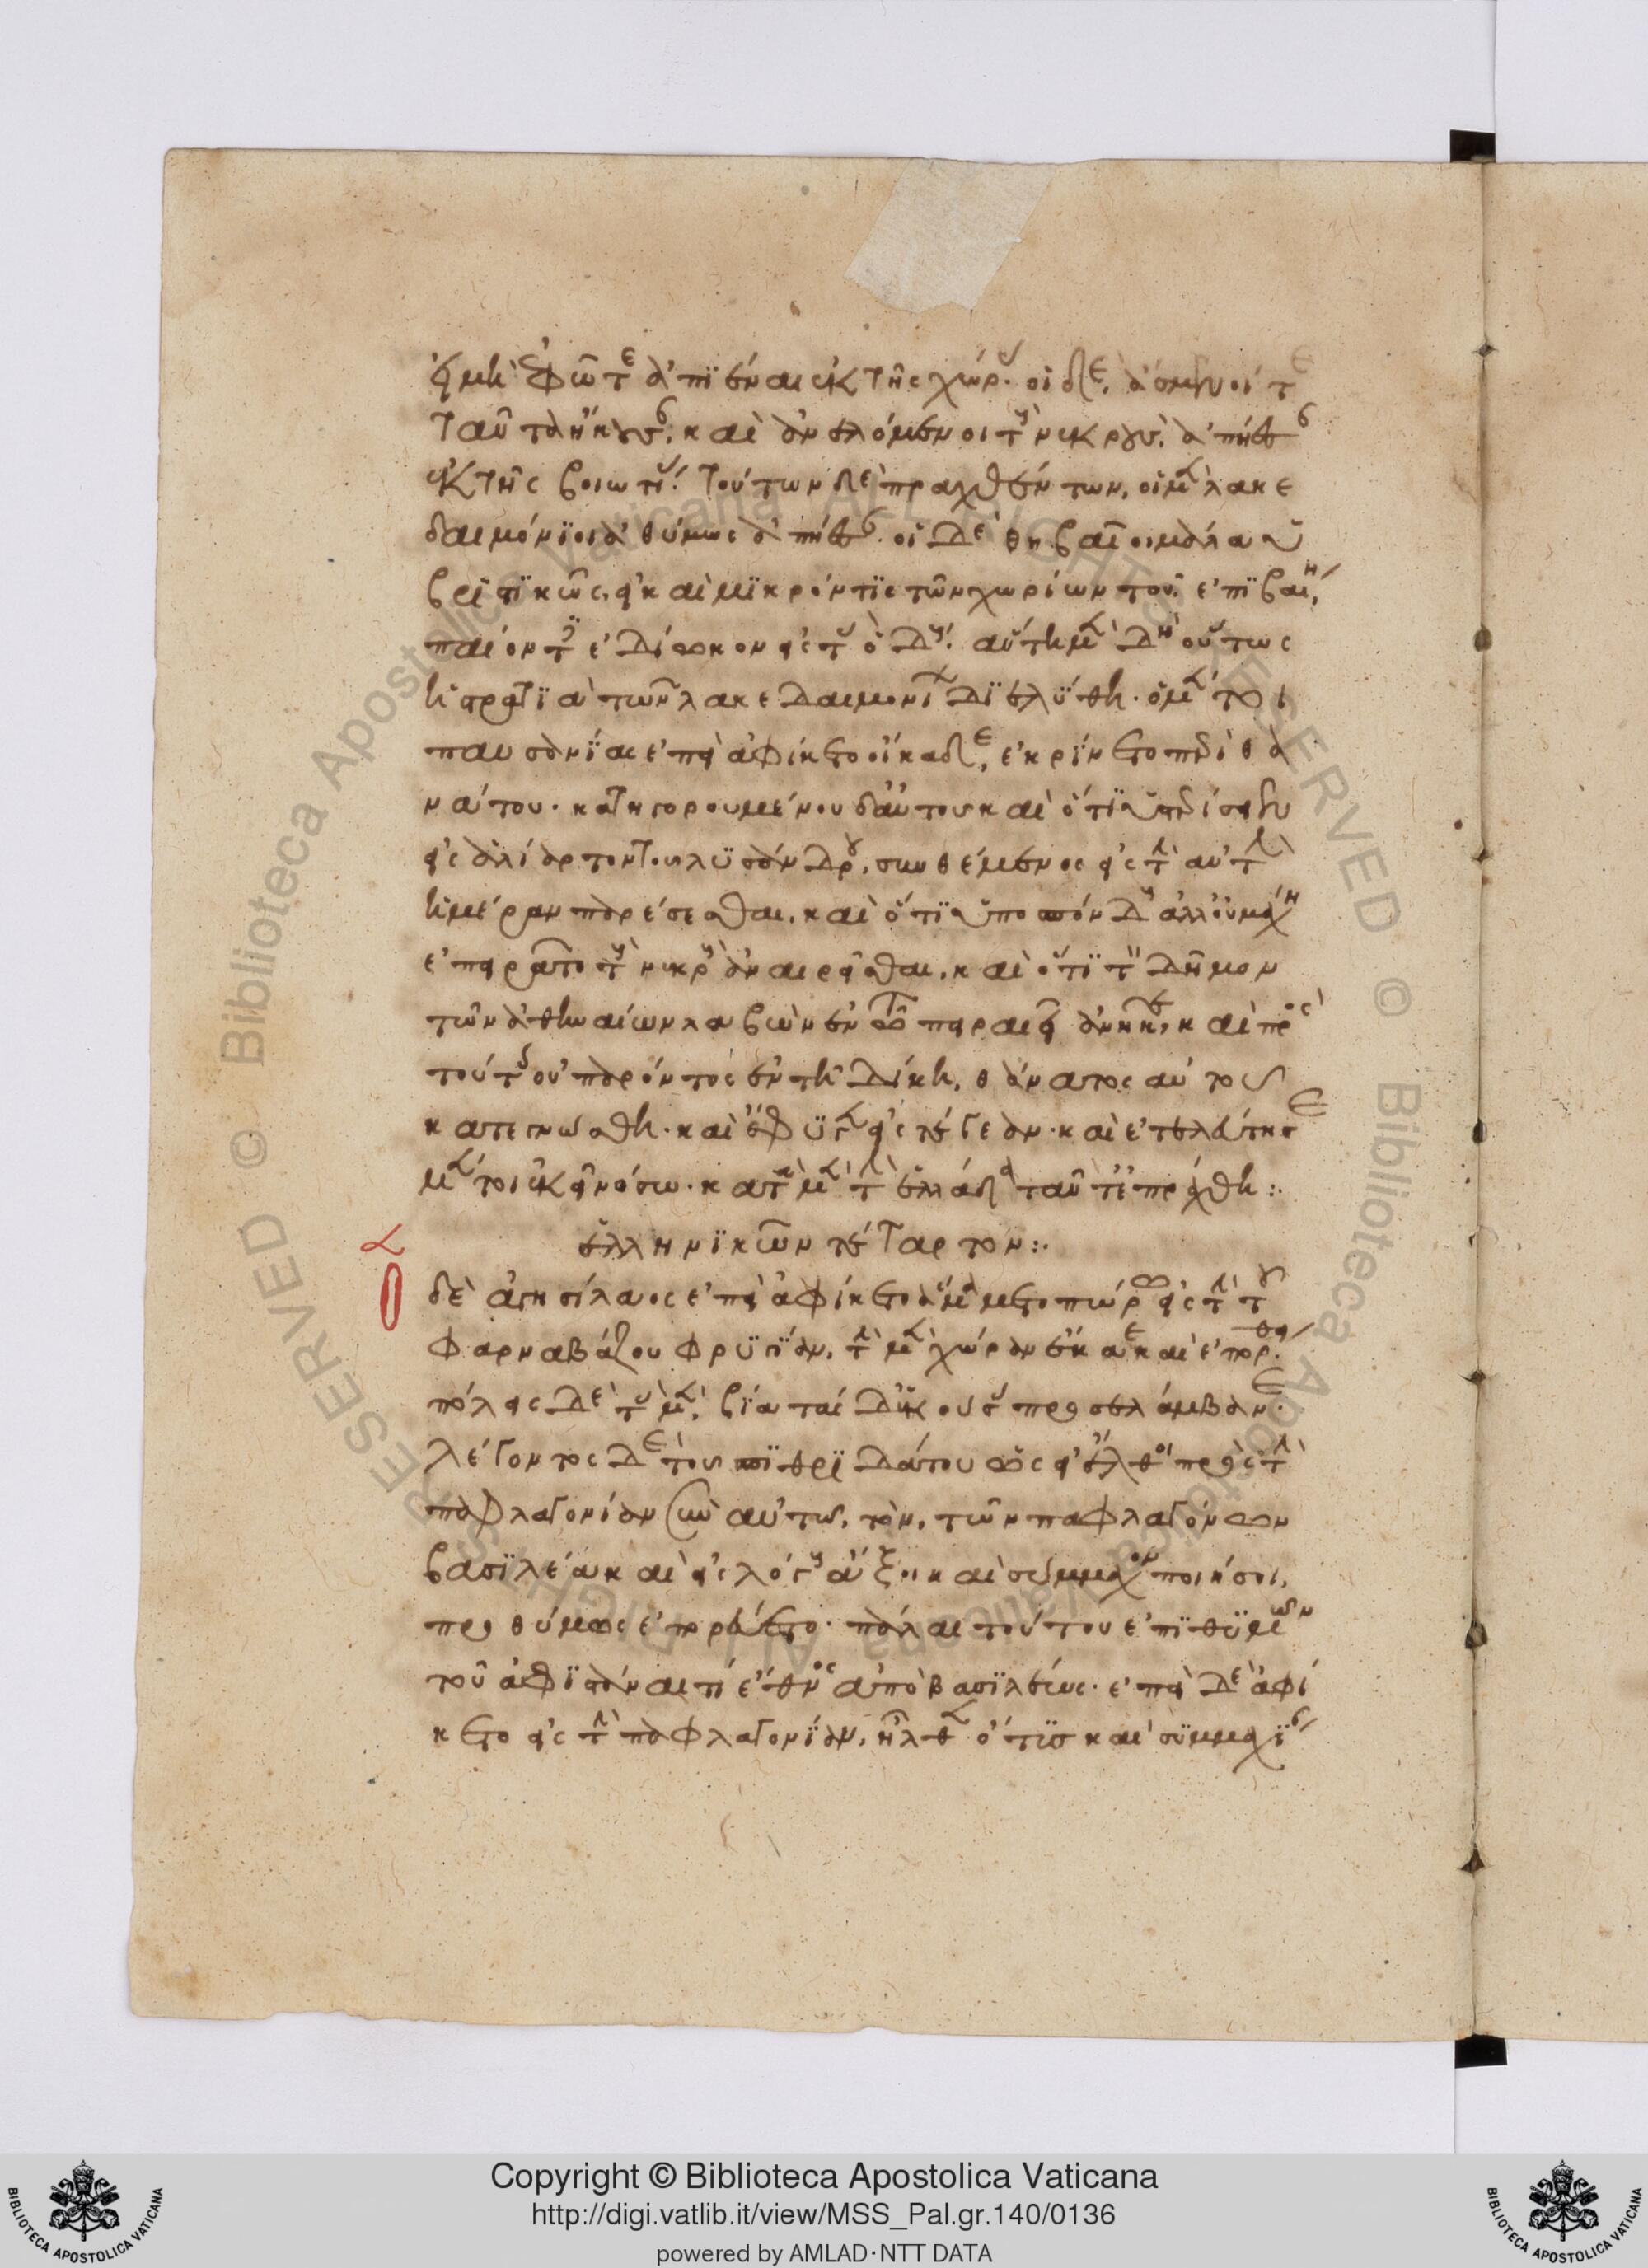 εἰ μὴ ἐφ' ᾧτε ἀπιέναι ἐκ τῆς χώρας. οἱ δὲ, ἄσμενοί τε
ταῦτα ἤκουσαν, καὶ ἀνελόμενοι τοὺς νεκροὺς, ἀπήεσαν
ἐκ τῆς βοιωτίας. τούτων δὲ πραχθέντων, οἱ μὲν λακε
δαιμόνιοι ἀθύμως ἀπήεσαν. οἱ δὲ θηβαῖοι μάλα ὑ
βριστικῶς, εἰ καὶ μικρόν τις τῶν χωρίων του ἐπιβαίη,
παίοντες ἐδίωκον εἰς τὰς ὁδούς. αὕτη μὲν δὴ οὕτως
ἡ στρατιὰ τῶν λακεδαιμονίων διελύθη. ὁ μέντοι
παυσανίας ἐπεὶ ἀφίκετο οἴκαδε, ἐκρίνετο περὶ θα
νάτου. κατηγορουμένου δ' αὐτοῦ καὶ ὅτι ὑστερήσειεν
εἰς ἁλίαρτον τοῦ λυσάνδρου, συνθέμενος εἰς τὴν αὐτὴν
ἡμέραν παρέσεσθαι, καὶ ὅτι ὑποσπόνδους ἀλλ' οὐ μάχῃ
ἐπειρᾶτο τοὺς νεκροὺς ἀναιρεῖσθαι, καὶ ὅτι τὸν δῆμον
τῶν ἀθηναίων λαβὼν ἐν τῷ πειραιεῖ ἀνῆκε, καὶ πρὸς
τούτοις οὐ παρόντος ἐν τῇ δίκῃ, θάνατος αὐτοῦ
κατεγνώσθη. καὶ ἔφυγεν εἰς τέγεαν. καὶ ἐτελεύτησε
μέντοι ἐκεῖ νόσῳ. κατὰ μὲν τὴν ἑλλάδα ταῦτ' ἐπράχθη :.
ἑλληνικῶν τέταρτον :.
Ὁ δὲ ἀγησίλαος ἐπεὶ ἀφίκετο ἅμα μετοπώρῳ εἰς τὴν τοῦ
φαρναβάζου φρυγίαν, τὴν μὲν χώραν ἔκαε καὶ ἐπόρθει,
πόλεις δὲ τὰς μὲν, βίᾳ τὰς δ' ἑκούσας προσελάμβανε.
λέγοντος δὲ τοῦ σπιθριδάτου ὡς εἰ ἔλθοι πρὸς τὴν
παφλαγονίαν σὺν αὐτῷ, τὸν, τῶν παφλαγόνων
βασιλέα καὶ εἰς λόγους ἄξοι καὶ σύμμαχον ποιήσοι,
προθύμως ἐπορεύετο. πάλαι τούτου ἐπιθυμῶν
τοῦ ἀφιστάναι τι ἔθνος ἀπὸ βασιλέως. ἐπεὶ δὲ ἀφί
κετο εἰς τὴν παφλαγονίαν, ἦλθεν ὄτυς καὶ συμμαχίαν
Copyright © Biblioteca Apostolica Vaticana
http://digi.vatlib.it/view/MSS_Pal.gr.140/0136
powered by AMLAD·NTT DATA